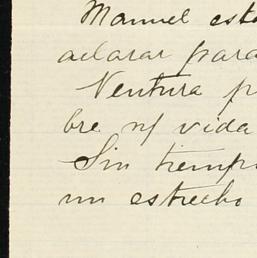 Manuel est
aclarar para
Ventura p
bre n/ vida
Sin tiemp
un estrecho